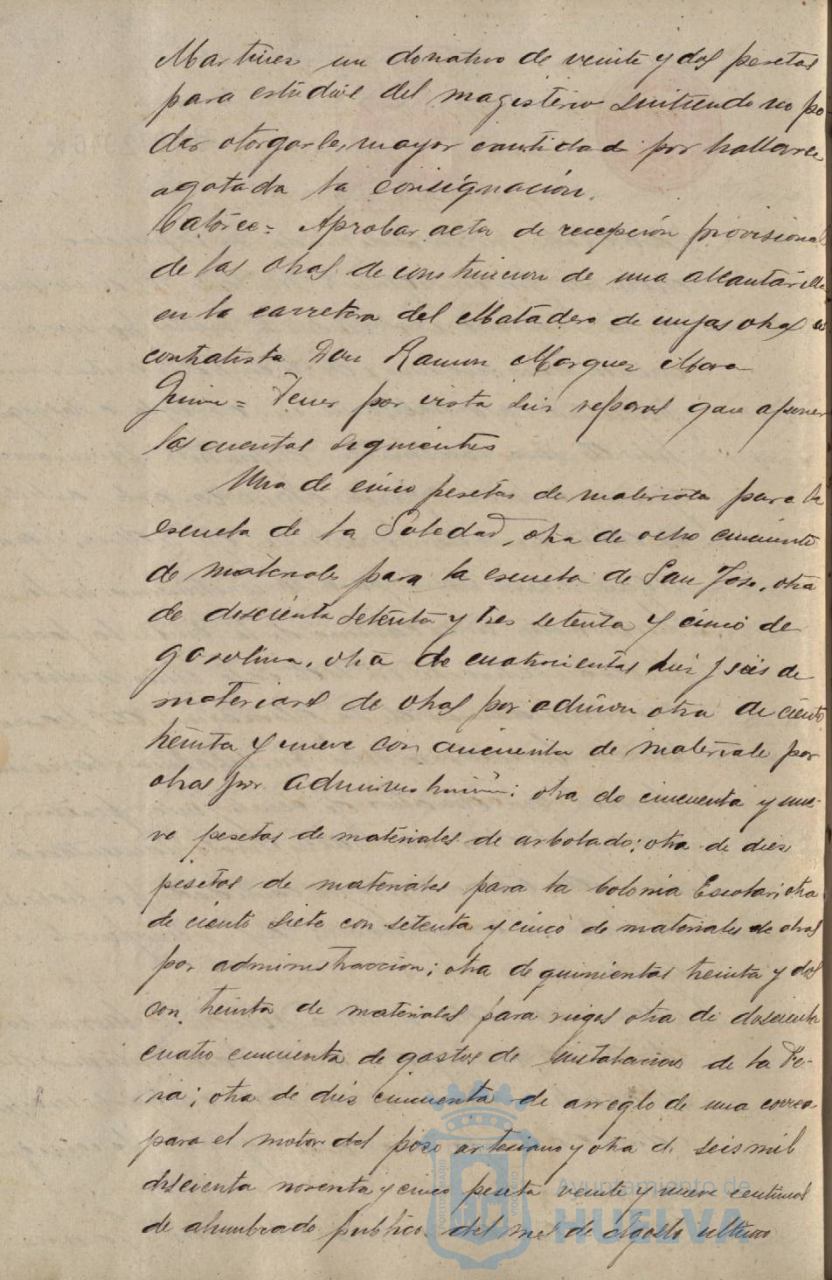 Martinez un donativo de veinte y dos pesetas
para estudios del magisterio sintiendo no po-
der otorgarle mayor cantidad por hallarse
agotada la consignación.
Catorce = Aprobar acta de recepción provisional
de las obras de construccion de una alcantarilla
en la carretera del Matadero de cuyas obras es
contratista Don Ramon Marquez Mora
= Tener por vista sin reparos que oponer
las cuentas siguientes
Una de cinco pesetas de materiales para la
escuela de la Soledad, otra de ocho cincuenta
de materiales para la escuela de San Jose, otra
de doscienta setenta y tres setenta y cinco de
gasolina, otra de cuatrocientas diez y seis de
materiales de obras por admon otra de ciento
treinta y nueve con cincuenta de materiale por
obras por administración; otra de cincuenta y nue-
ve pesetas de materiales de arbolado; otra de diez
pesetas de materiales para la Colonia Escolar; otra
de ciento siete con setenta y cinco de materiales de obras
por administraccion; otra de quinientas treinta y dos
con treinta de materiales para riegos otra de doscienta
cuatro cincuenta de gastos de instalacion de la Fe-
ria; otra de diez cincuenta de arreglo de una correa
para el motor del pozo artesiano y otra de seis mil
doscienta noventa y cinco peseta veinte y nueve centimos
de alumbrado publico del mes de Agosto ultimo
Ayuntamiento de
HUELVA